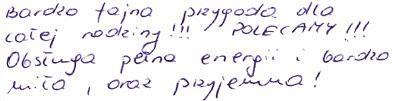 Bardzo fajna przygoda dla
całej rodziny!!! POLECAMY!!!
Obsługa pełna energii i bardzo
miła, oraz przyjemna!